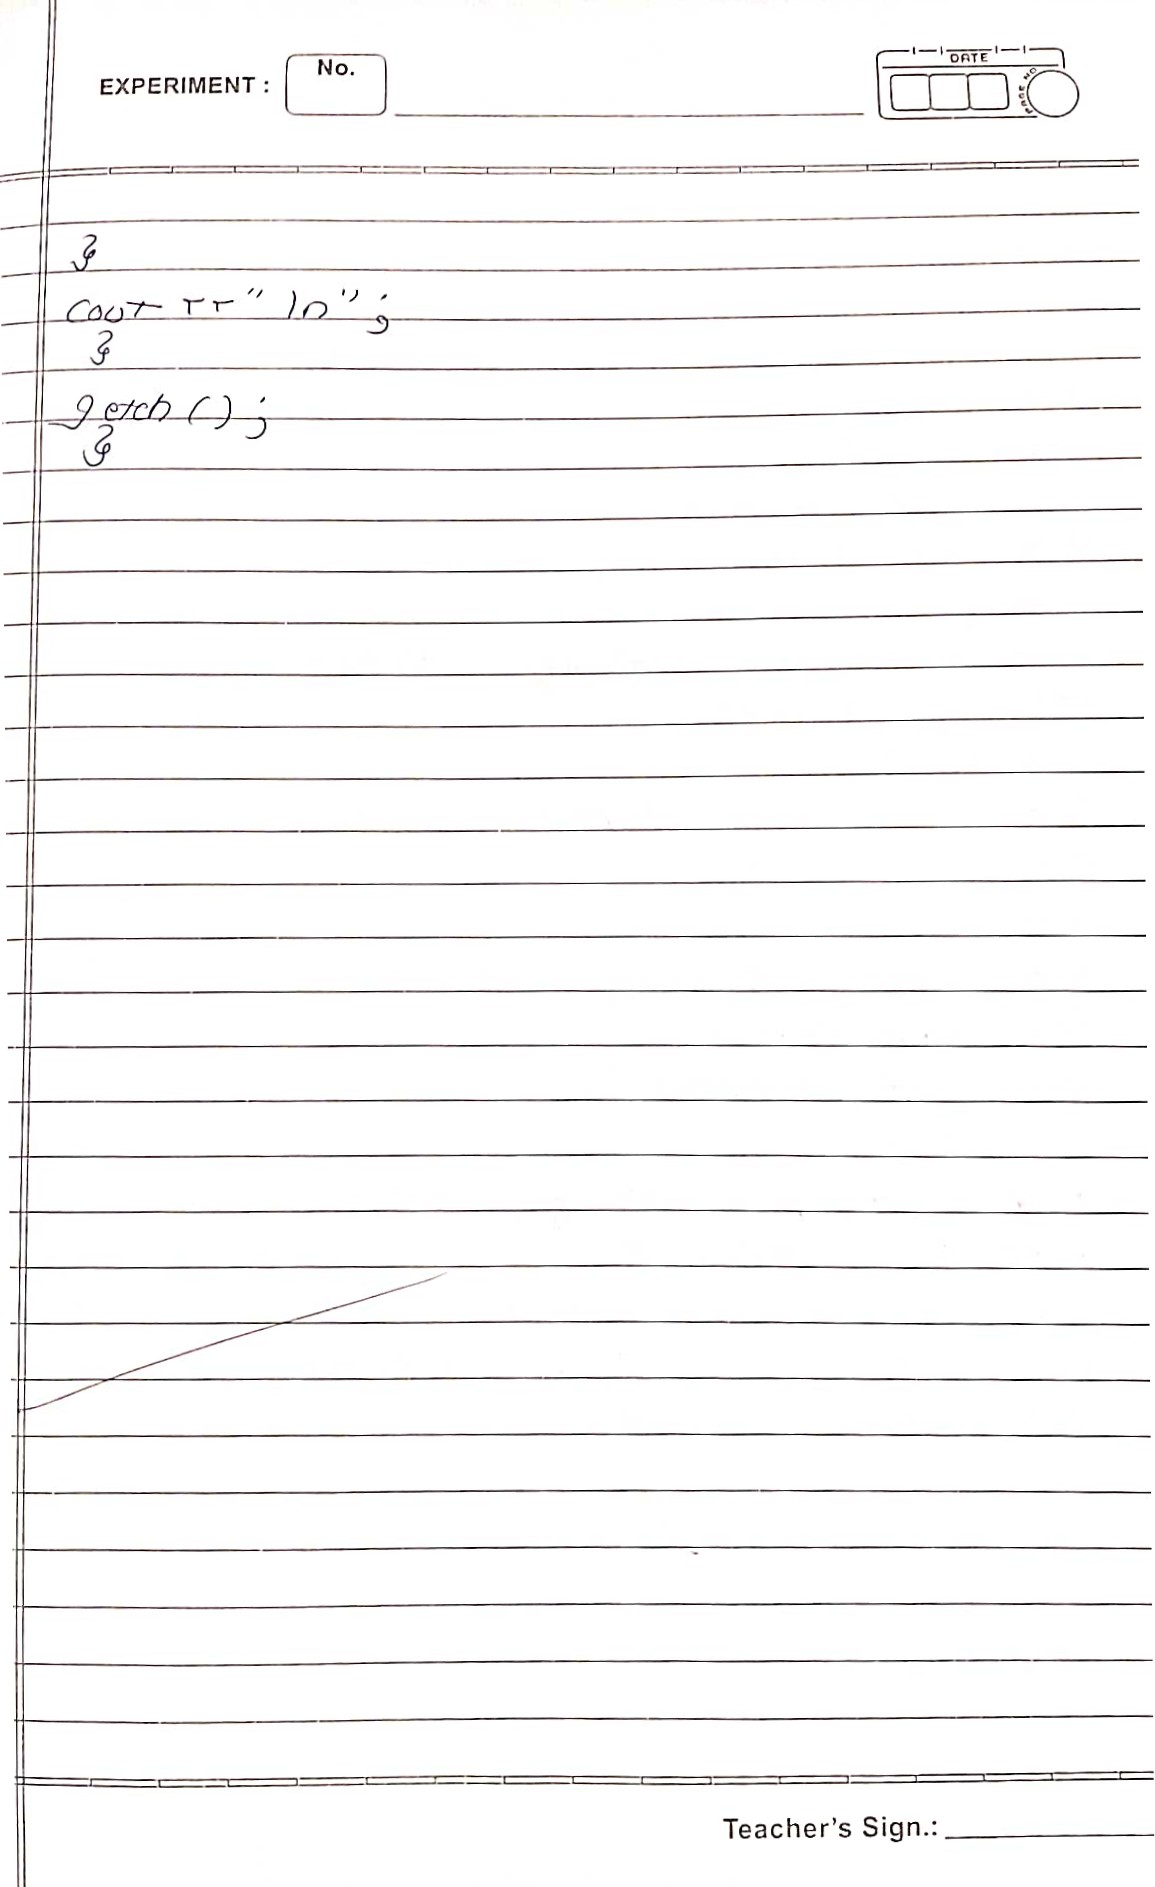 EXPERIMENT : No.
DATE
PAGE NO
}
cout << "\n";
}
getch();
}
Teacher's Sign.: